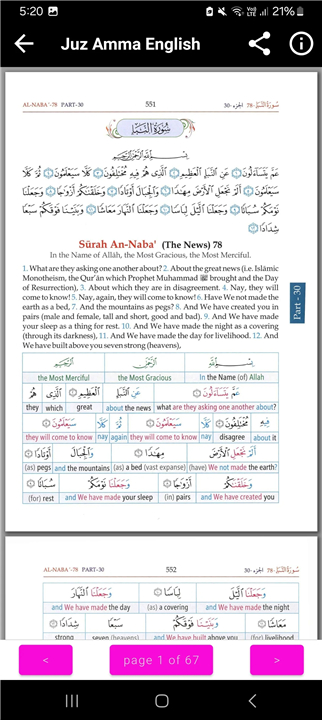 5:20
21%
Juz Amma English
AL-NABA'-78 PART-30 551 سُورَةُ النَّبَإ -78 الجزء-30
سُورَةُ النَّبَإِ
بِسْمِ اللَّهِ الرَّحْمَٰنِ الرَّحِيمِ
عَمَّ يَتَسَاءَلُونَ ۝١ عَنِ النَّبَإِ الْعَظِيمِ ۝٢ الَّذِي هُمْ فِيهِ مُخْتَلِفُونَ ۝٣ كَلَّا سَيَعْلَمُونَ ۝٤ ثُمَّ كَلَّا
سَيَعْلَمُونَ ۝٥ أَلَمْ نَجْعَلِ الْأَرْضَ مِهَادًا ۝٦ وَالْجِبَالَ أَوْتَادًا ۝٧ وَخَلَقْنَاكُمْ أَزْوَاجًا ۝٨ وَجَعَلْنَا
نَوْمَكُمْ سُبَاتًا ۝٩ وَجَعَلْنَا اللَّيْلَ لِبَاسًا ۝١٠ وَجَعَلْنَا النَّهَارَ مَعَاشًا ۝١١ وَبَنَيْنَا فَوْقَكُمْ سَبْعًا
شِدَادًا ۝١٢
Sūrah An-Naba' (The News) 78
In the Name of Allāh, the Most Gracious, the Most Merciful.
1. What are they asking one another about? 2. About the great news (i.e. Islāmic
Monotheism, the Qur'ān which Prophet Muhammad ﷺ brought and the Day
of Resurrection), 3. About which they are in disagreement. 4. Nay, they will
come to know! 5. Nay, again, they will come to know! 6. Have We not made the
earth as a bed, 7. And the mountains as pegs? 8. And We have created you in
pairs (male and female, tall and short, good and bad). 9. And We have made
your sleep as a thing for rest. 10. And We have made the night as a covering
(through its darkness), 11. And We have made the day for livelihood. 12. And
We have built above you seven strong (heavens),
Part - 30
بِسْمِ اللَّهِ الرَّحْمَٰنِ الرَّحِيمِ
In the Name (of) Allah the Most Gracious the Most Merciful
عَمَّ يَتَسَاءَلُونَ ۝١ عَنِ النَّبَإِ الْعَظِيمِ ۝٢ الَّذِي هُمْ
they which great about the news what are they asking one another about?
فِيهِ مُخْتَلِفُونَ ۝٣ كَلَّا سَيَعْلَمُونَ ۝٤ ثُمَّ كَلَّا سَيَعْلَمُونَ ۝٥
they will come to know nay again they will come to know nay disagree about it
أَلَمْ نَجْعَلِ الْأَرْضَ مِهَادًا ۝٦ وَالْجِبَالَ أَوْتَادًا ۝٧
(as) pegs and the mountains (as) a bed (vast expanse) (have) We not made the earth?
وَخَلَقْنَاكُمْ أَزْوَاجًا ۝٨ وَجَعَلْنَا نَوْمَكُمْ سُبَاتًا ۝٩
(for) rest and We have made your sleep (in) pairs and We have created you
AL-NABA'-78 PART-30 552 سُورَةُ النَّبَإ -78 الجزء-30
وَجَعَلْنَا اللَّيْلَ لِبَاسًا ۝١٠ وَجَعَلْنَا النَّهَارَ
and We have made the day (as) a covering and We have made the night
مَعَاشًا ۝١١ وَبَنَيْنَا فَوْقَكُمْ سَبْعًا شِدَادًا ۝١٢
strong seven (heavens) and We have built above you (for) livelihood
<
page 1 of 67
>